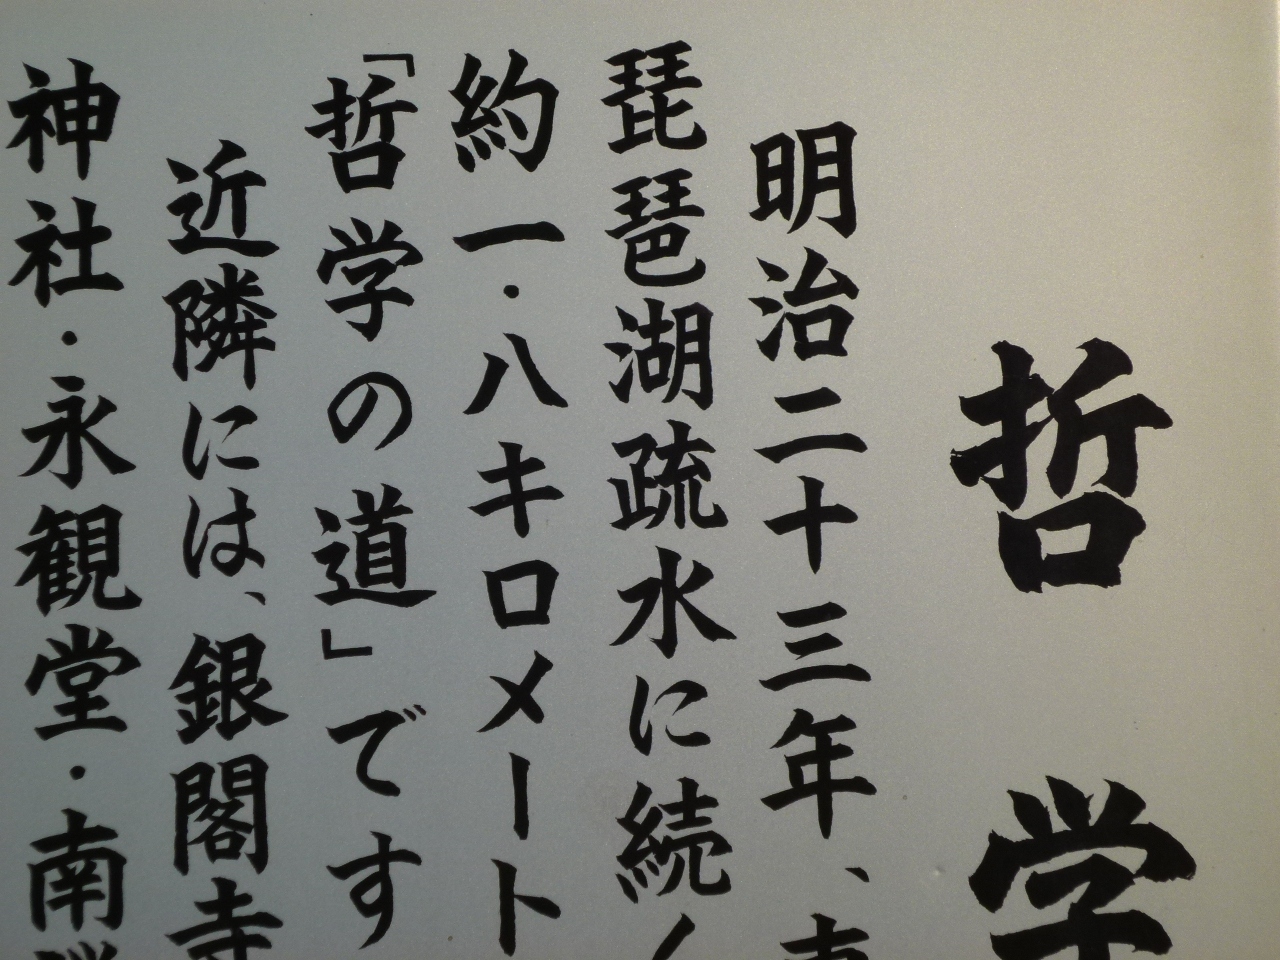 哲学
明治二十三年、
琵琶湖疏水に続
約一・八キロメート
「哲学の道」です
近隣には、銀閣寺
神社・永観堂・南